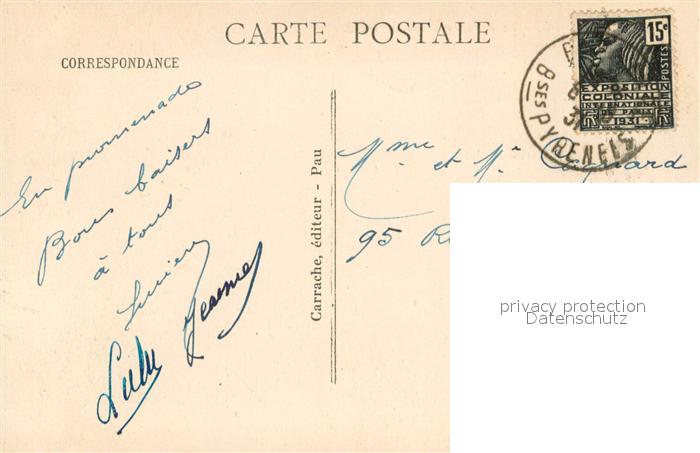 CARTE POSTALE
CORRESPONDANCE
En promenade
Bons baisers
à tous
Lucien
Jeanne
Lulu
Carrache, éditeur - Pau
15c
POSTES
EXPOSITION
COLONIALE
INTERNATIONALE
DE PARIS
1931
8
31
BSES PYRENEES
Mme et Mr
95 R
privacy protection
Datenschutz